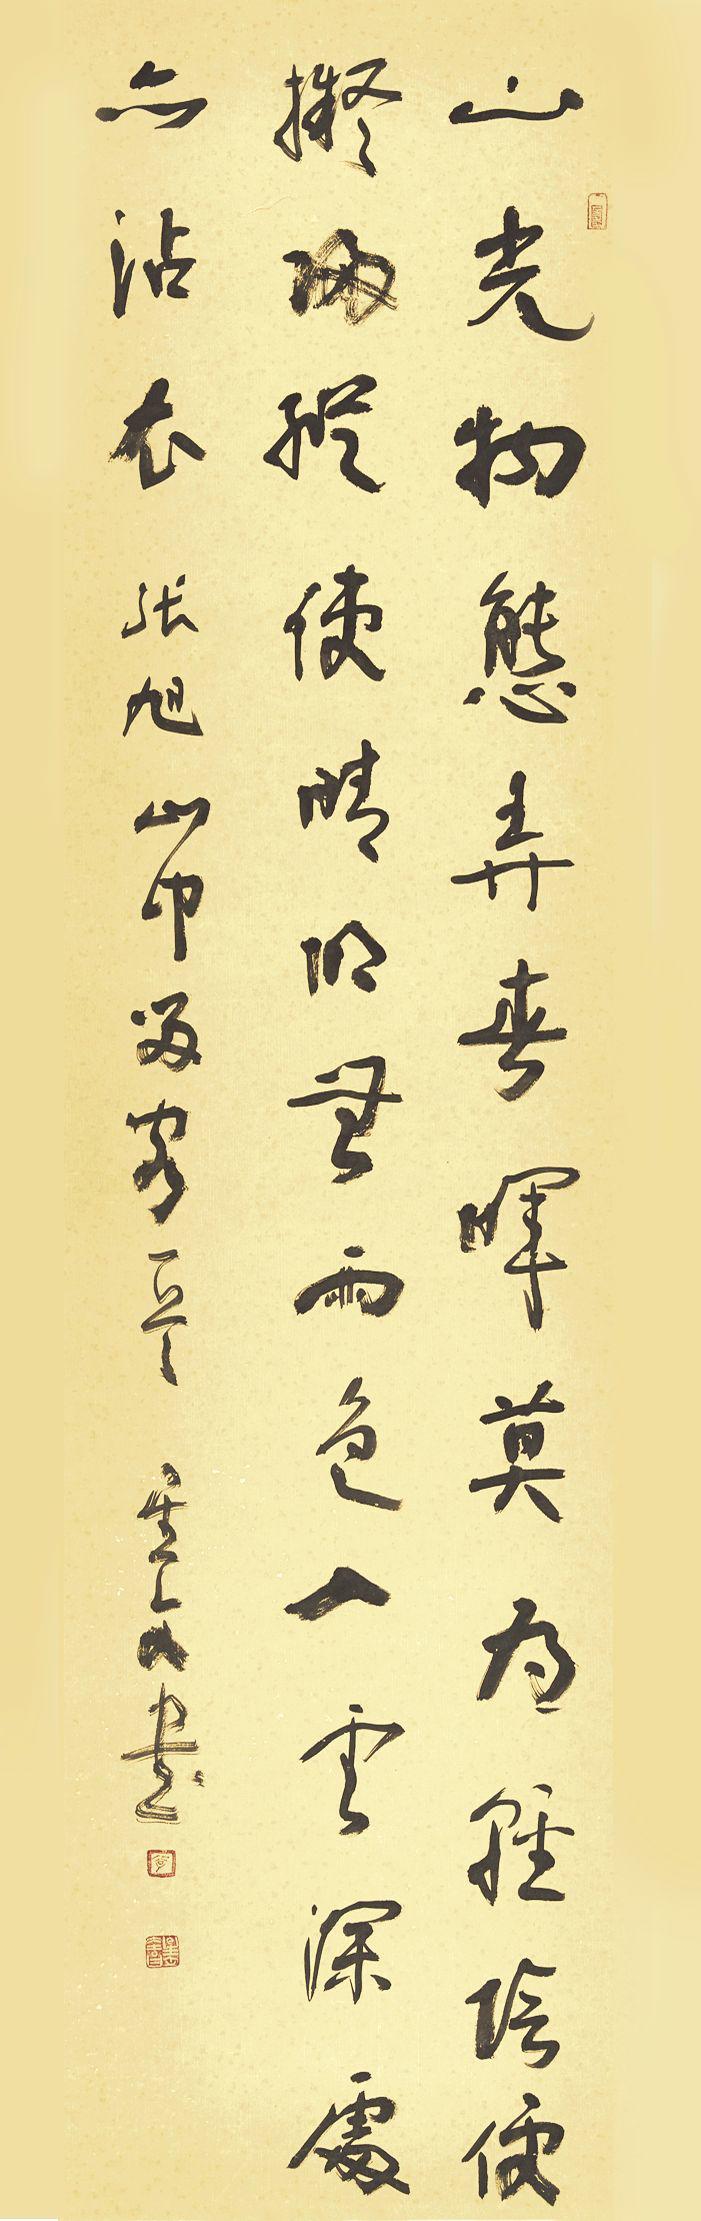 山光物態弄春暉莫為輕陰便
擬歸縱使晴明無雨色入雲深處
亦沾衣 張旭山中留客一首 書